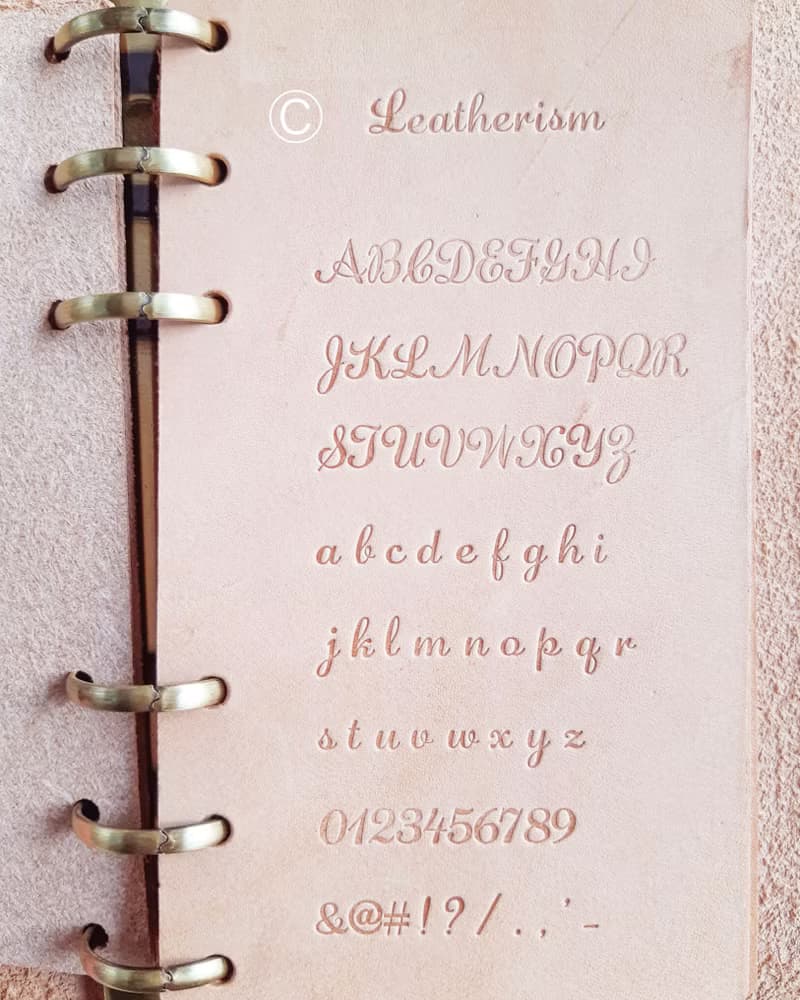 © Leatherism
ABCDEFGHI
JKLMNOPQR
STUVWXYZ
a b c d e f g h i
j k l m n o p q r
s t u v w x y z
0123456789
&@#!?/.,'-